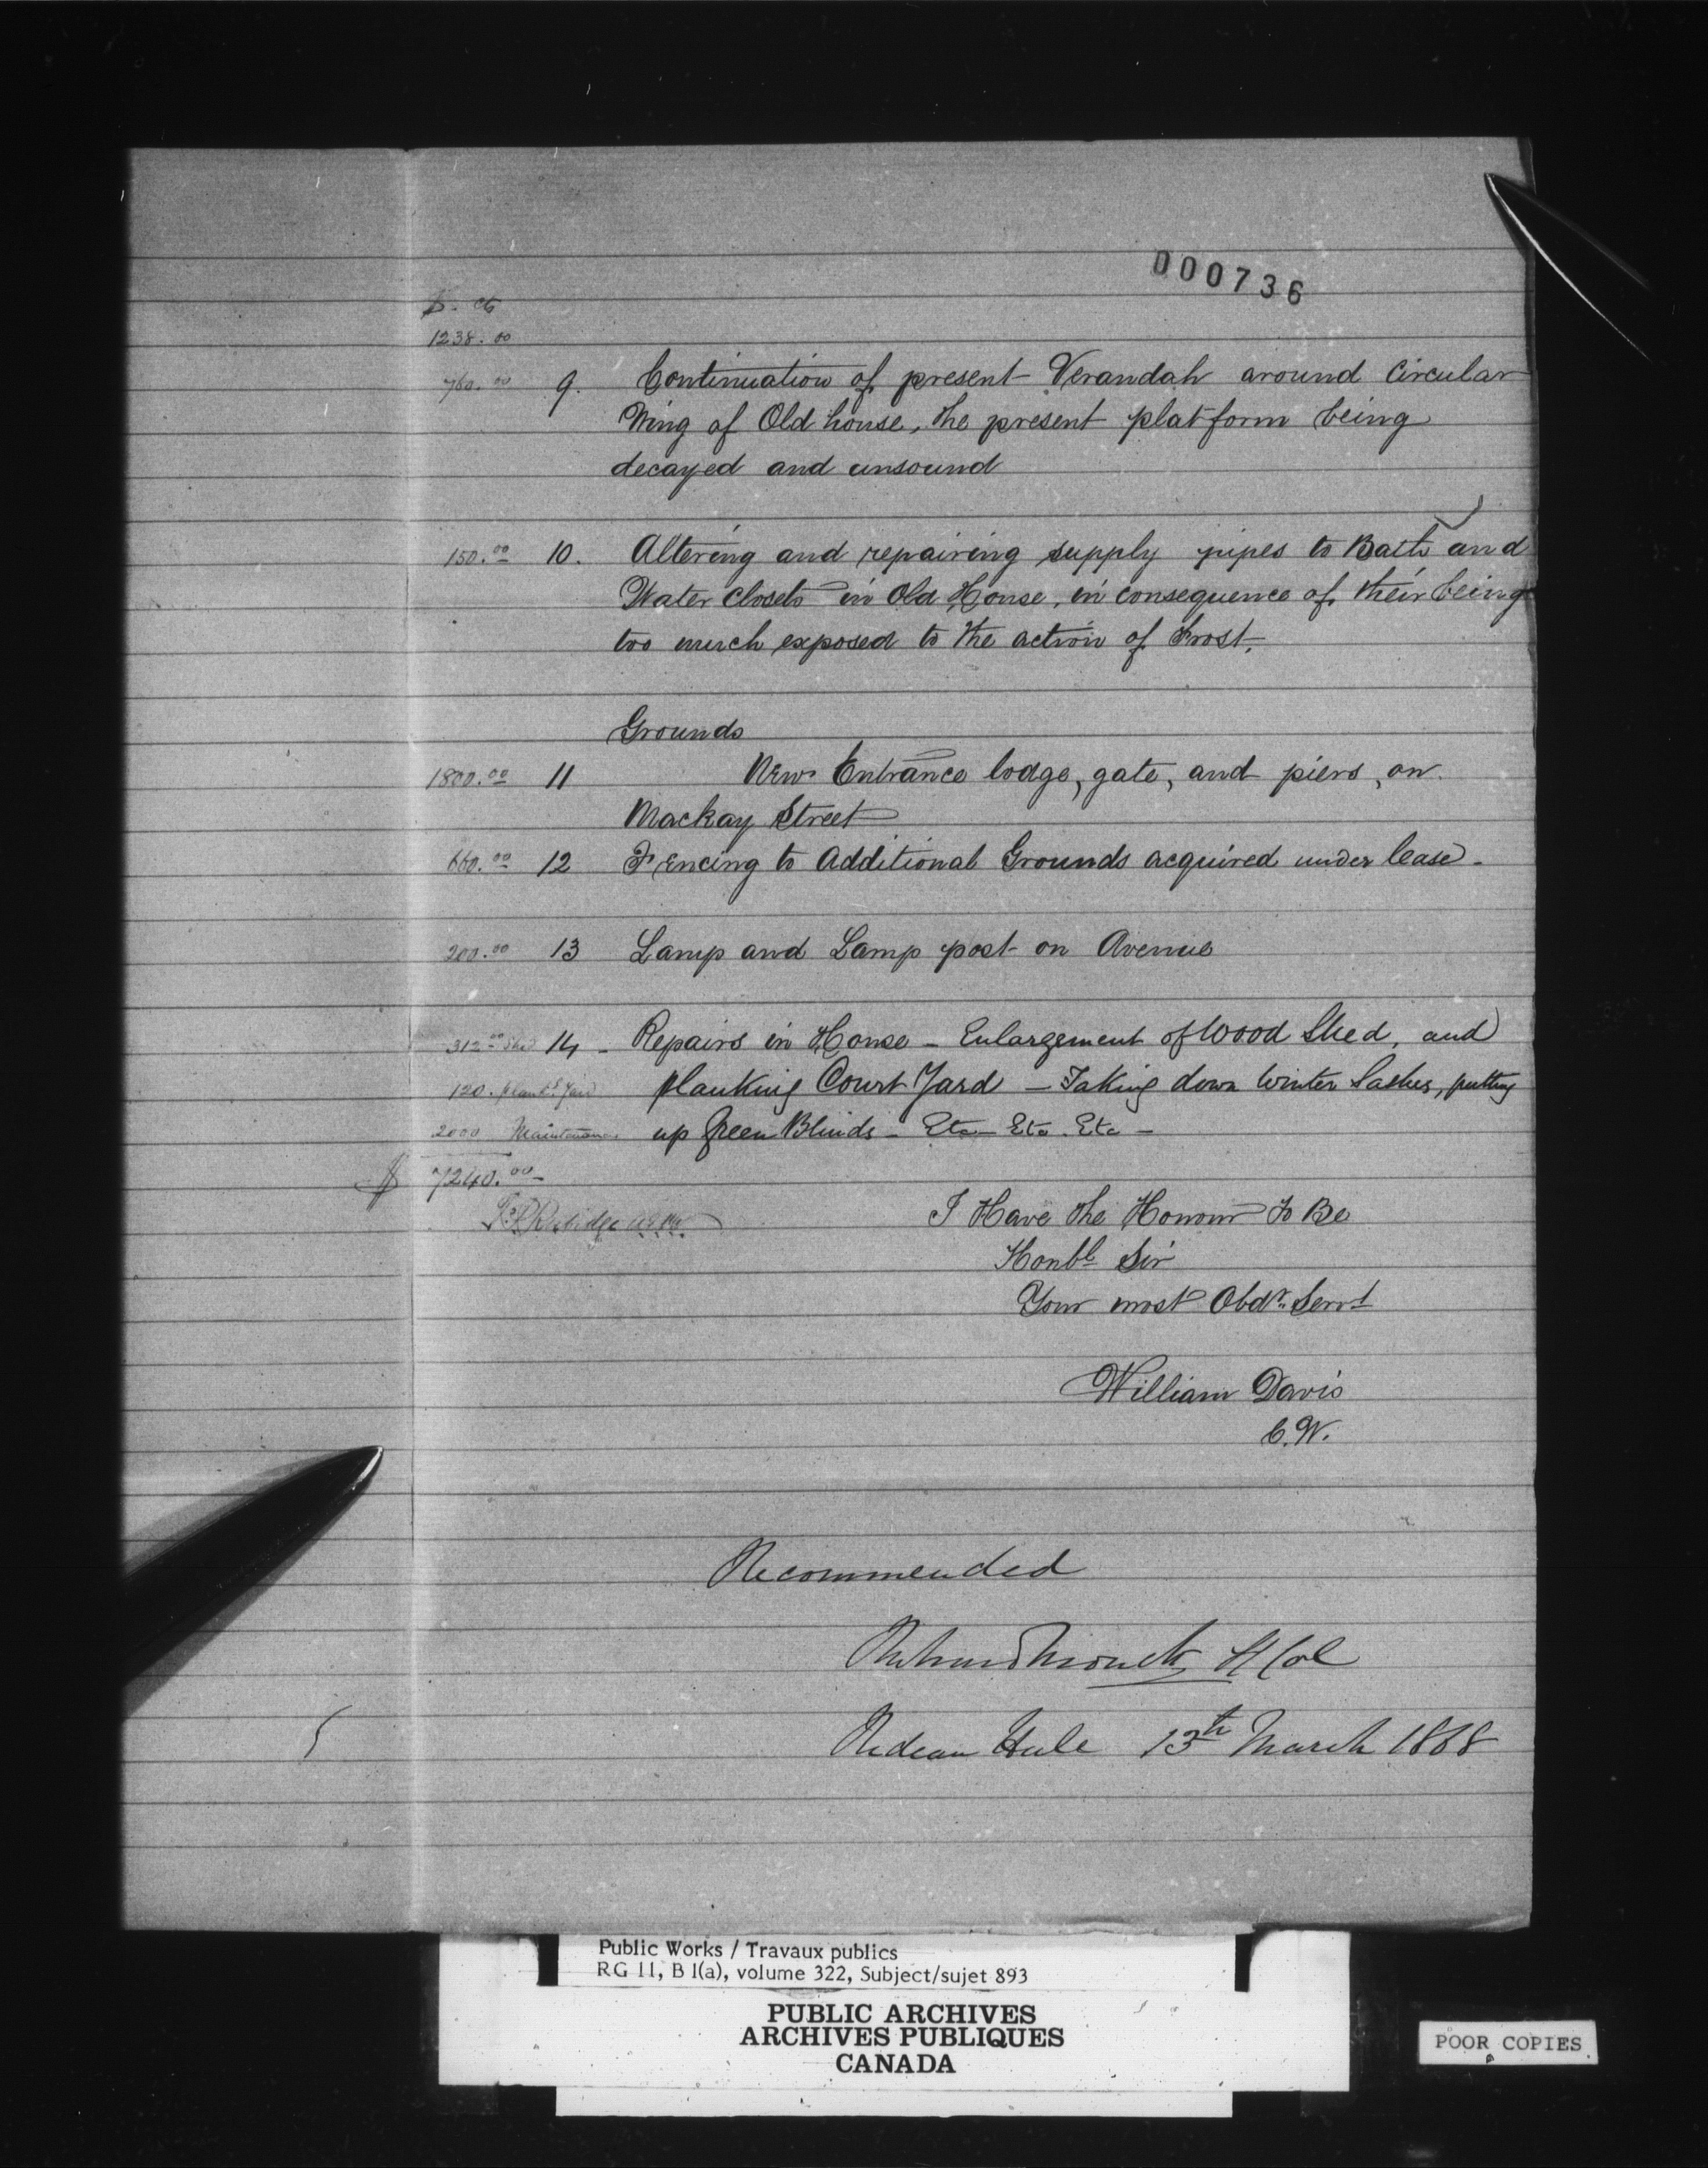 000736
$. cts
1238.00
760.00 9. Continuation of present Verandah around Circular
Wing of Old house, the present platform being
decayed and unsound
150.00 10. Altering and repairing supply pipes to Bath and
Water Closets in Old House, in consequence of their being
too much exposed to the action of Frost.
Grounds
1800.00 11 New Entrance lodge, gate, and piers, on
Mackay Street
660.00 12 Fencing to Additional Grounds acquired under lease -
200.00 13 Lamp and Lamp post on Avenue
312.00 Shed 14 - Repairs in House - Enlargement of Wood Shed, and
120. Plankg Yard planking Court Yard - Taking down Winter Sashes, putting
2000 Maintenance up Green Blinds - Etc - Etc. Etc -
$ 7240.00
I Have the Honour to Be
Honbl Sir
Your most Obdt. Servt
William Davis
C.W.
Recommended
Richard Monck Col
Rideau Hall 13th March 1868
Public Works / Travaux publics
RG 11, B 1(a), volume 322, Subject/sujet 893
PUBLIC ARCHIVES
ARCHIVES PUBLIQUES
CANADA
POOR COPIES